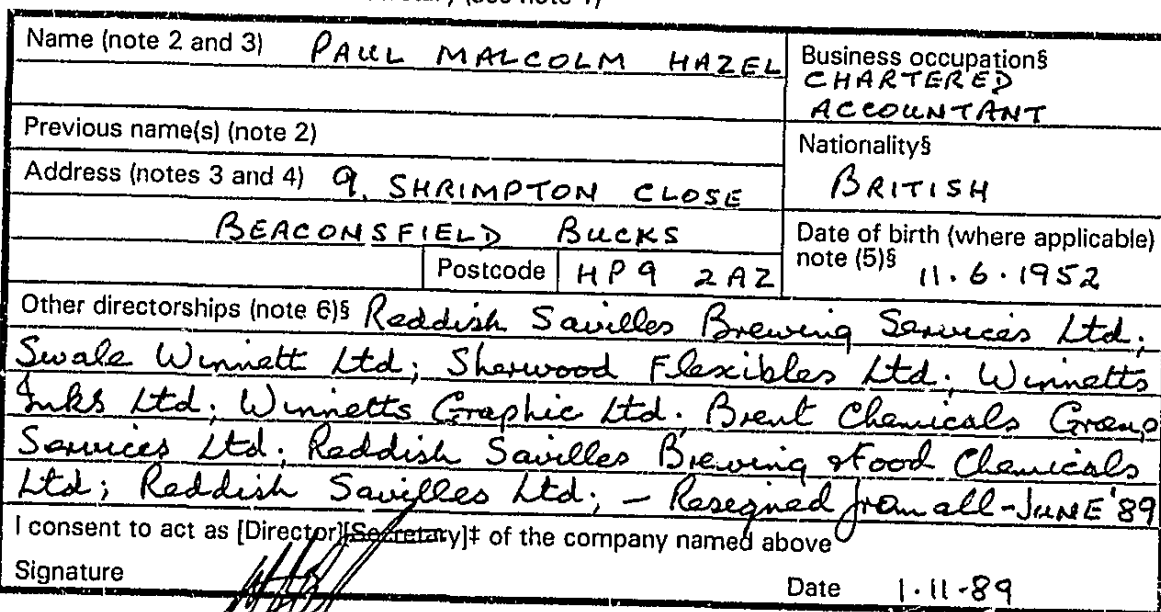 Name (note 2 and 3) PAUL MALCOLM HAZEL
Business occupation§
CHARTERED
ACCOUNTANT
Previous name(s) (note 2)
Nationality§
BRITISH
Address (notes 3 and 4) 9. SHRIMPTON CLOSE
BEACONSFIELD BUCKS
Postcode HP9 2AZ
Date of birth (where applicable)
note (5)§ 11.6.1952
Other directorships (note 6)§ Reddish Savilles Brewing Services Ltd;
Swale Winnett Ltd; Sherwood Flexibles Ltd; Winnetts
Inks Ltd; Winnetts Graphic Ltd; Brent Chemicals Group
Services Ltd; Reddish Savilles Brewing & Food Chemicals
Ltd; Reddish Savilles Ltd; - Resigned from all - JUNE '89
I consent to act as [Director][Secretary]‡ of the company named above
Signature
Date 1.11-89